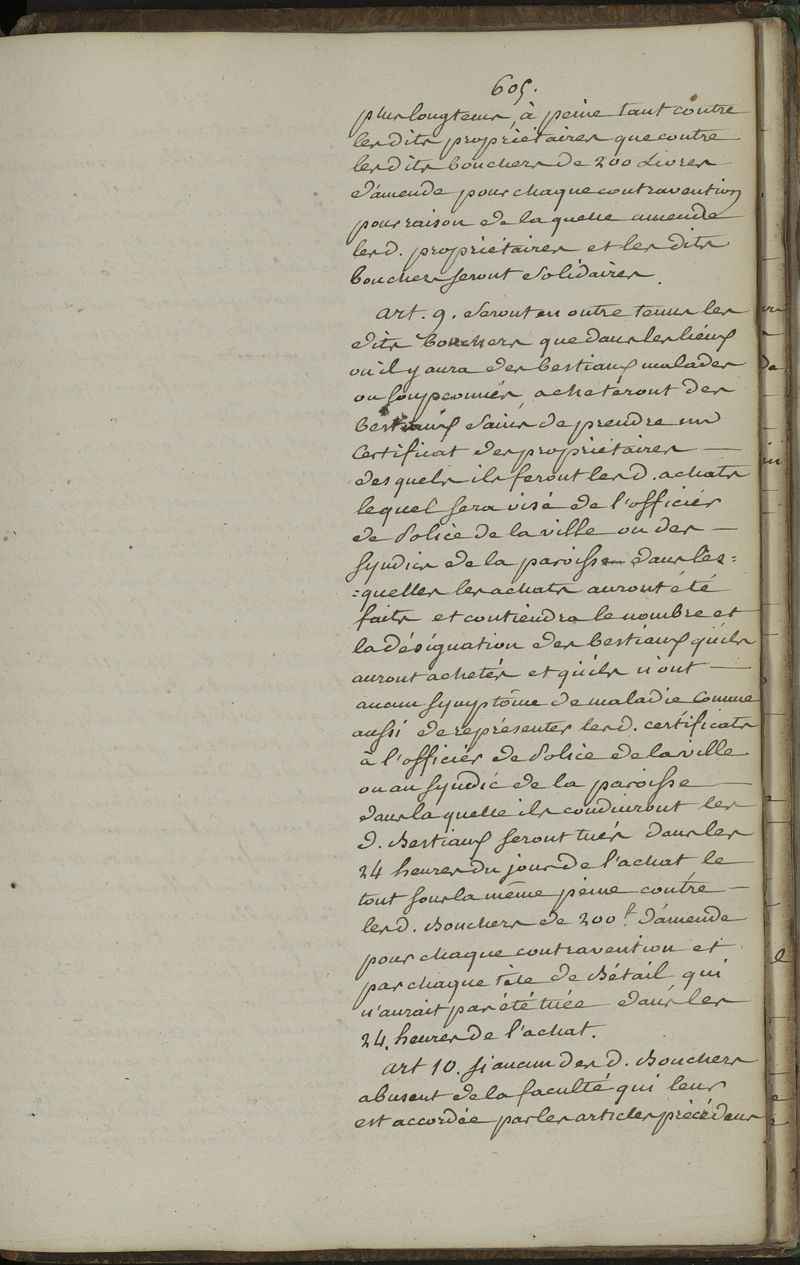 605.
plus longtems, à peine tant contre
les dits propriétaires que contre
les dits bouchers de 200 Livres
d'amende pour chaque contravention
pour raison de la quelle amende
les d. propriétaires et les dits
bouchers seront solidaires.
art. 9. seront en outre tenus les
dits bouchers que dans les liéux
où il y aura des bestiaux malades
ou soupconnés, acheteront des
bestiaux sains de prendre un
Certificat des propriétaires —
desquels ils feront les d. achats
lequel sera visé de l'officiér
de Police de la ville ou des —
syndics de la paroisse dans lès=
=quelles les achats auront été
faits et contiendra le nombre et
la désignation des bestiaux qu'ils
auront achetés et qu'ils n'ont —
aucun symptôme de maladie Comme
aussi de représenter les d. certificats
à l'officiér de Police de la ville
ou au syndic de la paroisse —
dans la quelle ils conduiront les
d. Bestiaux seront tués dans les
24 heures du jour de l'achat le
tout sous la même peine contre —
les d. Bouchers de 200 l. d'amende
pour chaque contravention et
par chaque tête de Bétail qui
n'aurait pas été tuée dans les
24. heures de l'achat.
art 10. si aucun des d. Bouchers
abusent de la faculté qui leur
est accordée par les articles précédens